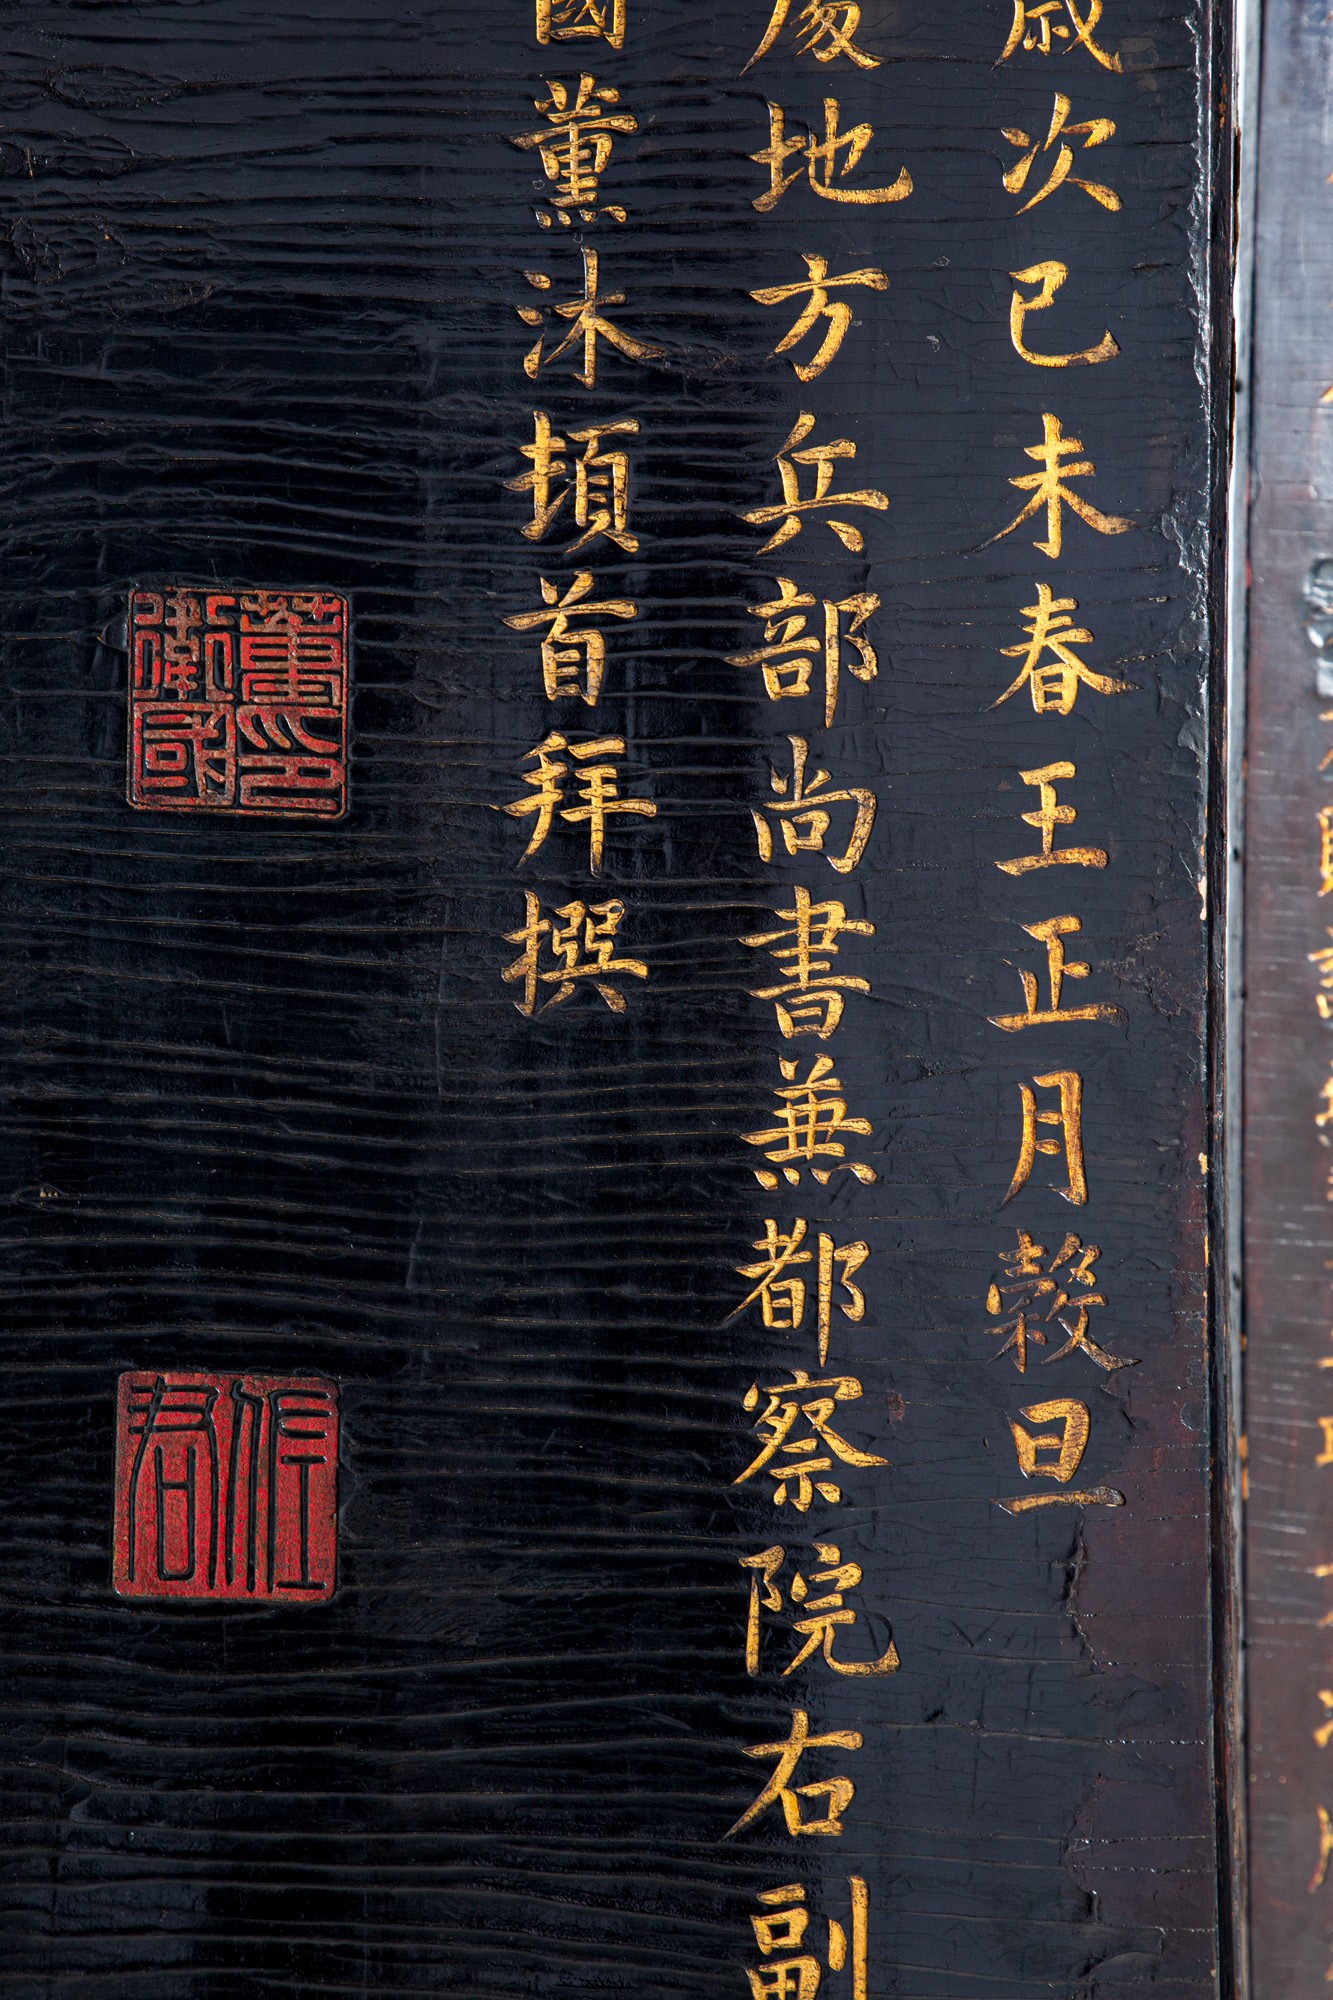 歲次己未春王正月穀旦
處地方兵部尚書兼都察院右副
國薰沐頓首拜撰
董印衛國
佐君